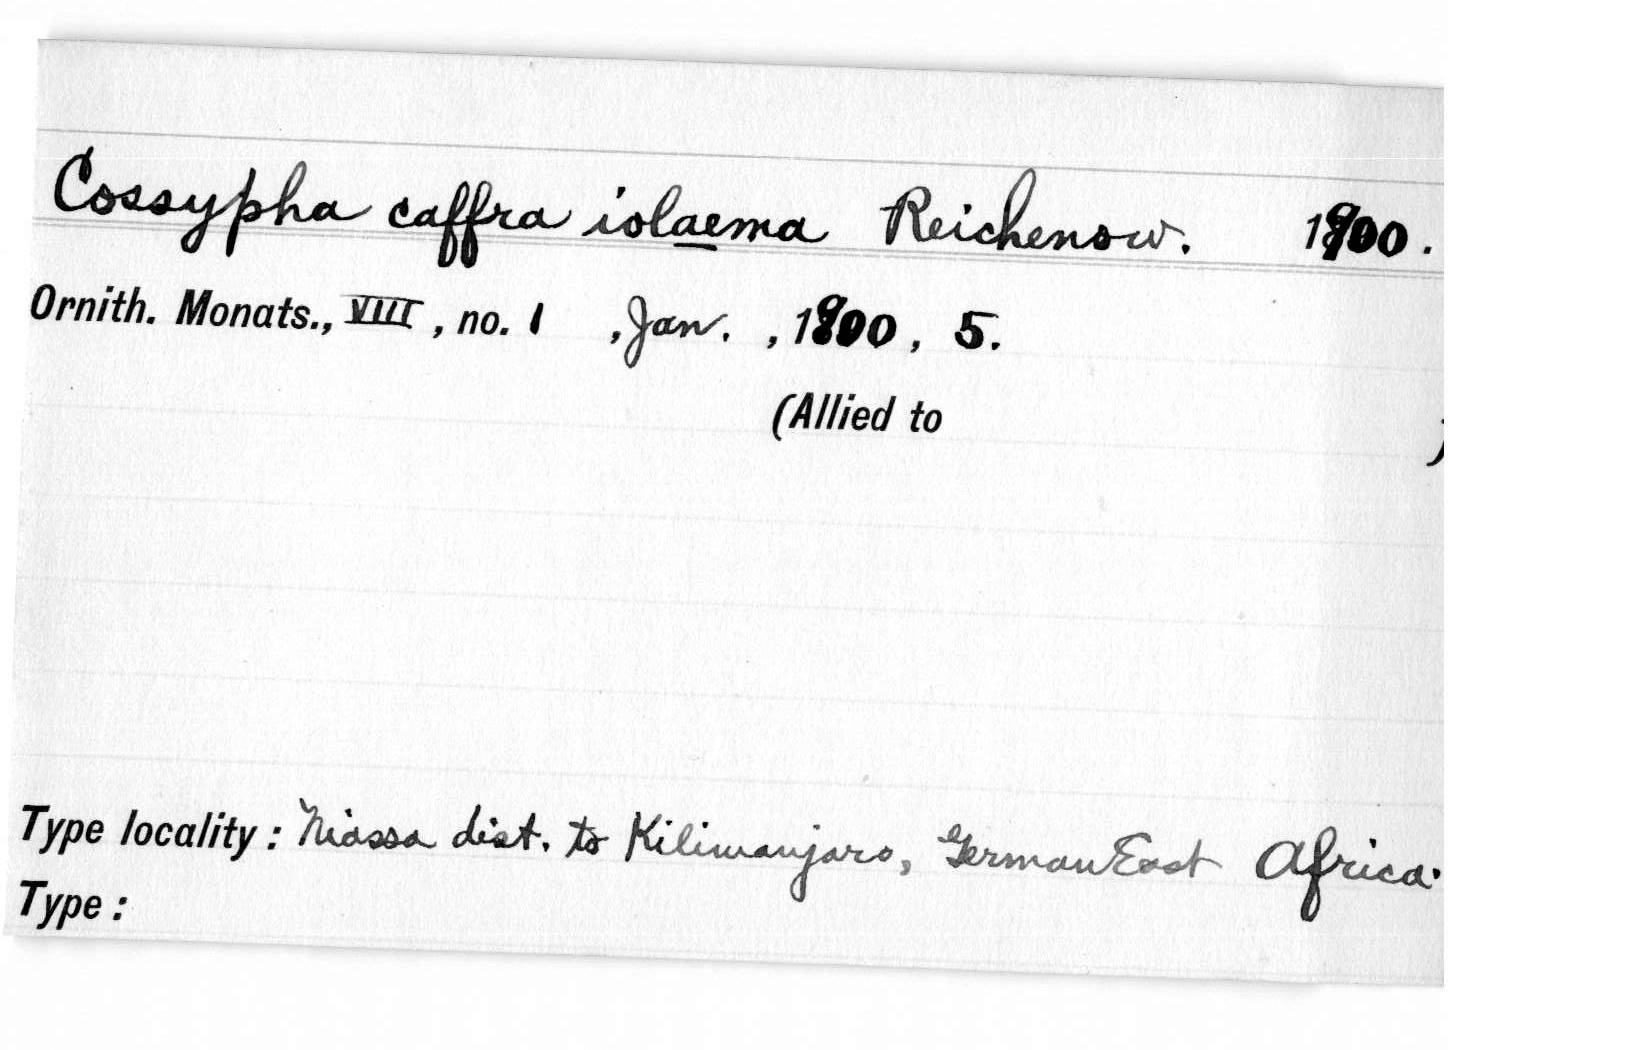 Cossypha caffra iolaema Reichenow. 1900.
Ornith. Monats., VIII, no. 1 , Jan. , 1900, 5.
(Allied to )
Type locality: Niassa dist. to Kilimanjaro, German East Africa.
Type: